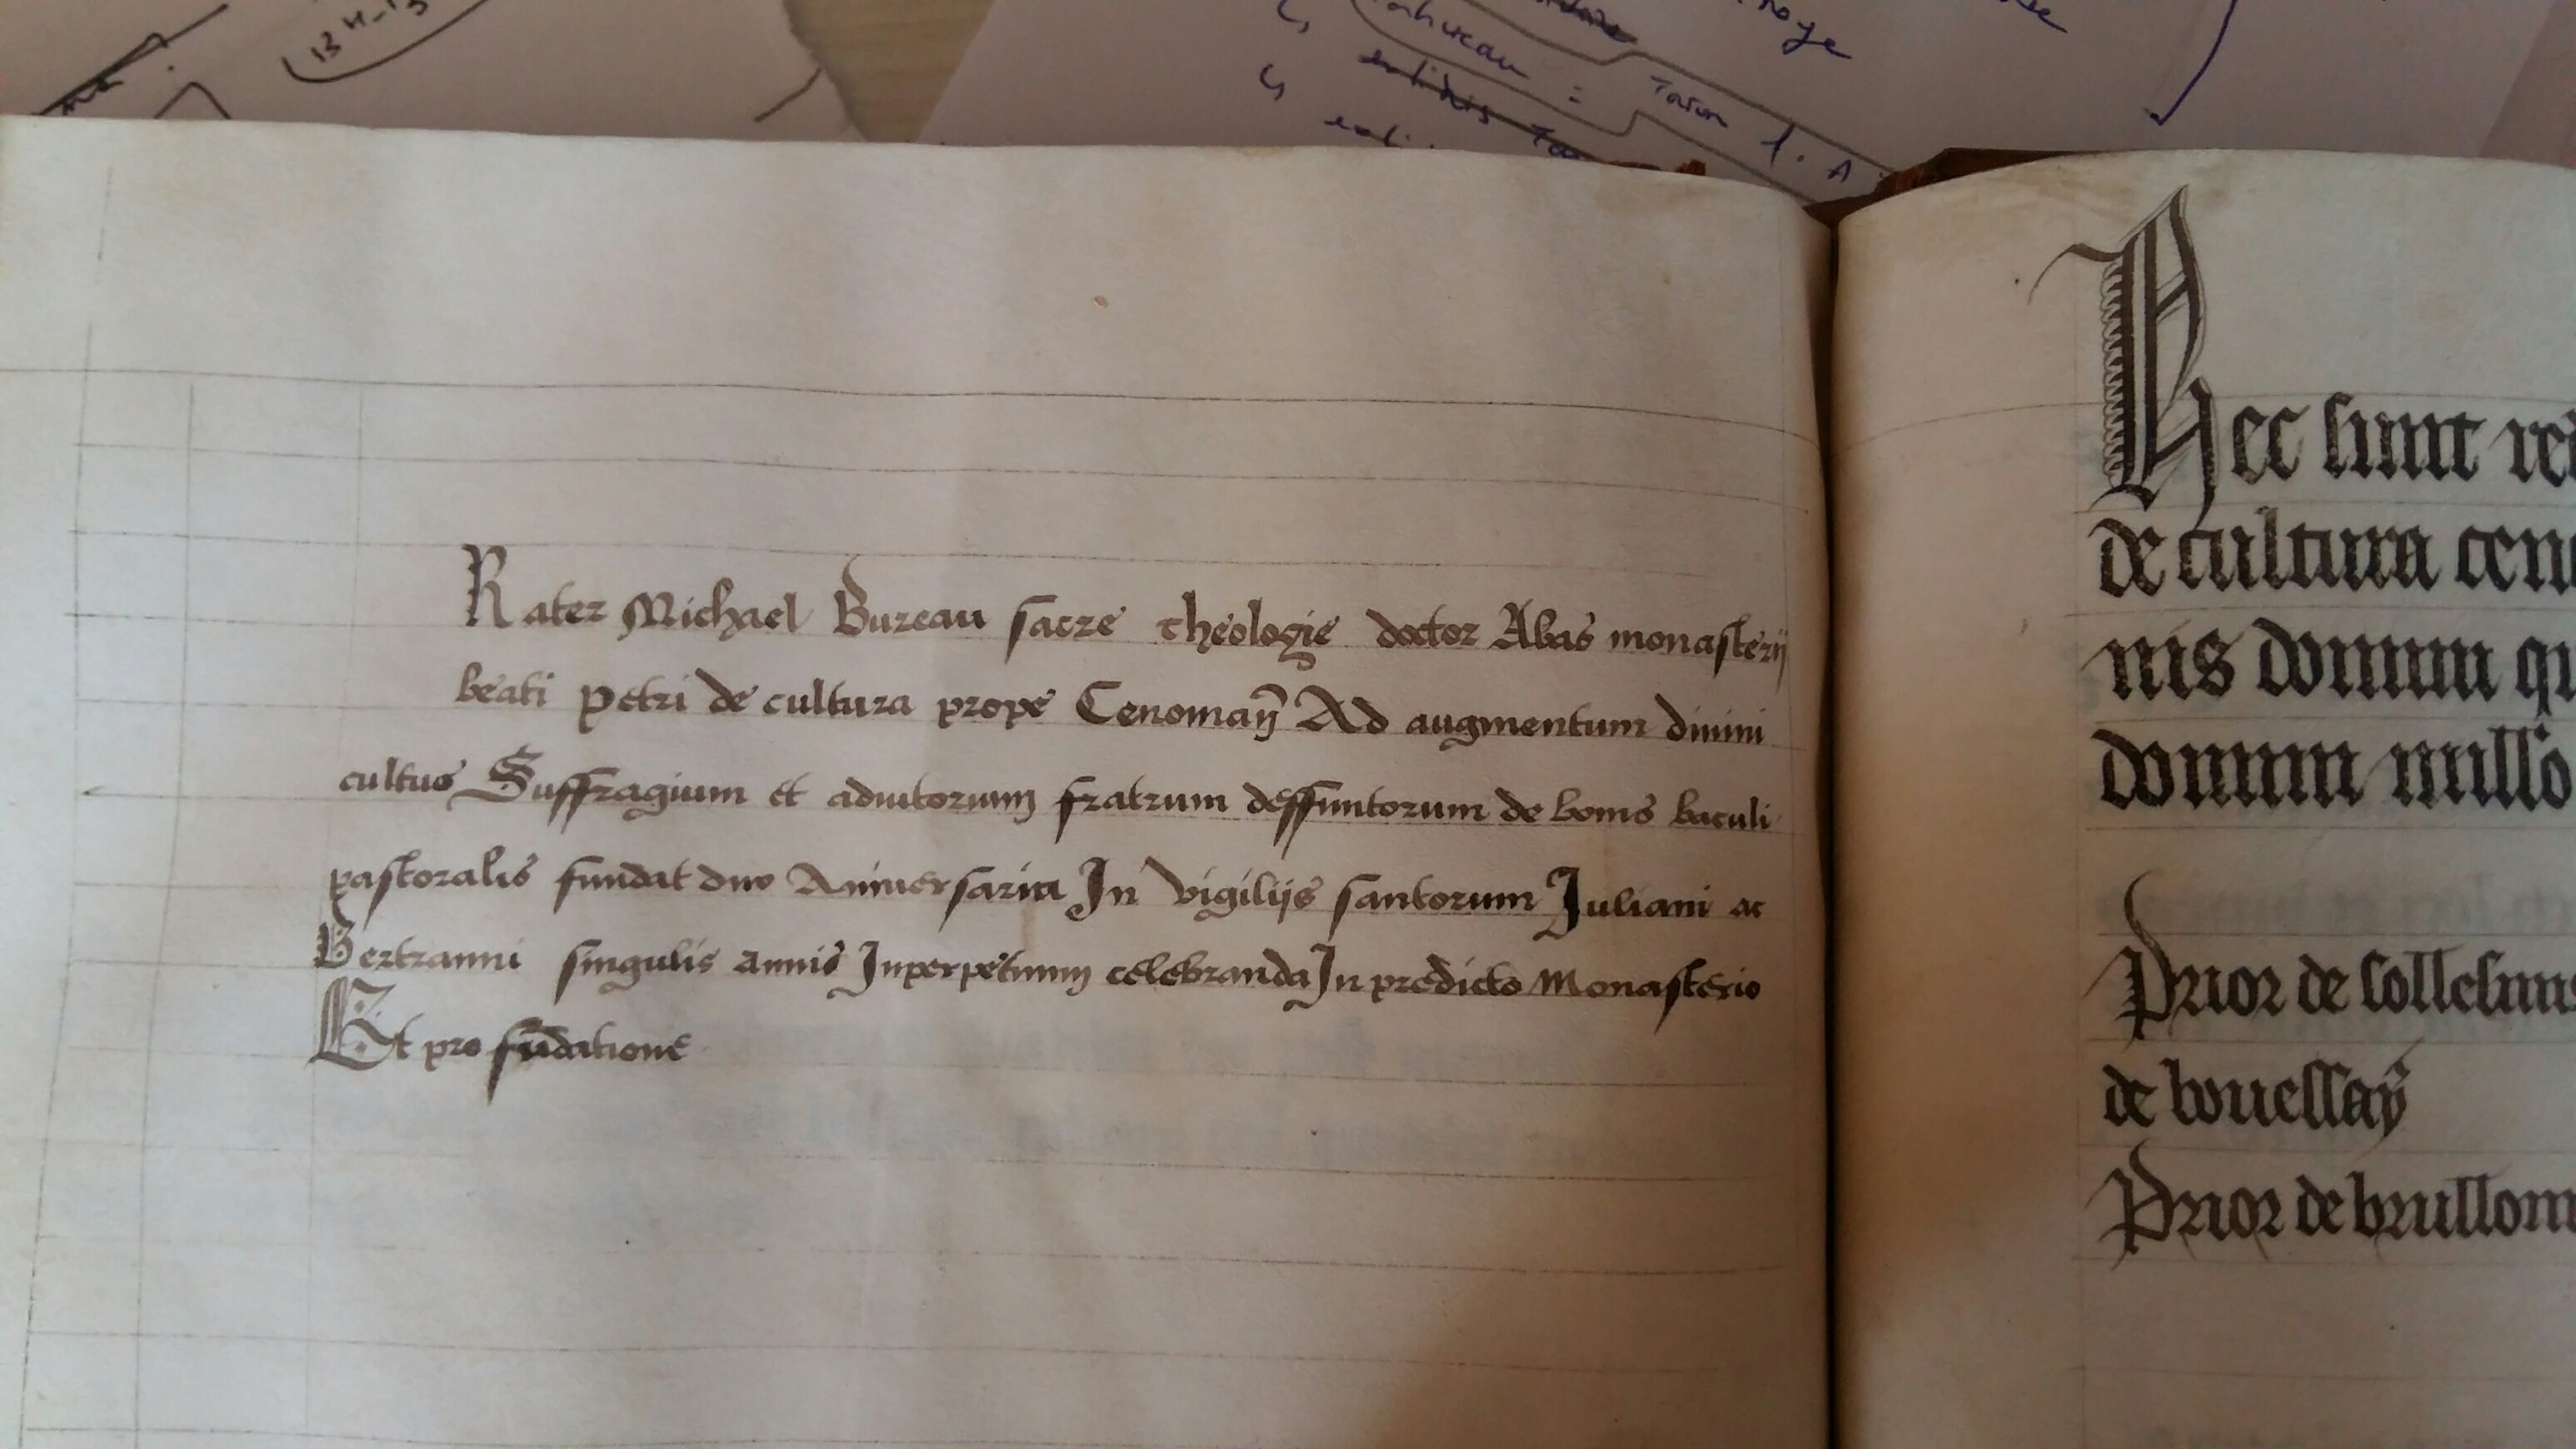 13
Tason l. A
Rater Michael Bureau sacre theologie doctor Abas monasterij
beati petri de cultura prope Cenomañ Ad augmentum diuini
cultus Suffragium et adiutorium fratrum deffuntorum de bonis baculi
pastoralis fundat duo Aniuersaria In vigilijs santorum Juliani ac
Bertranni singulis annis Inperpetuum celebranda In predicto Monasterio
Et pro fūdatione
Hec sunt
de cultura
nis domum
domum
Prior de
de bouessaÿ
Prior de